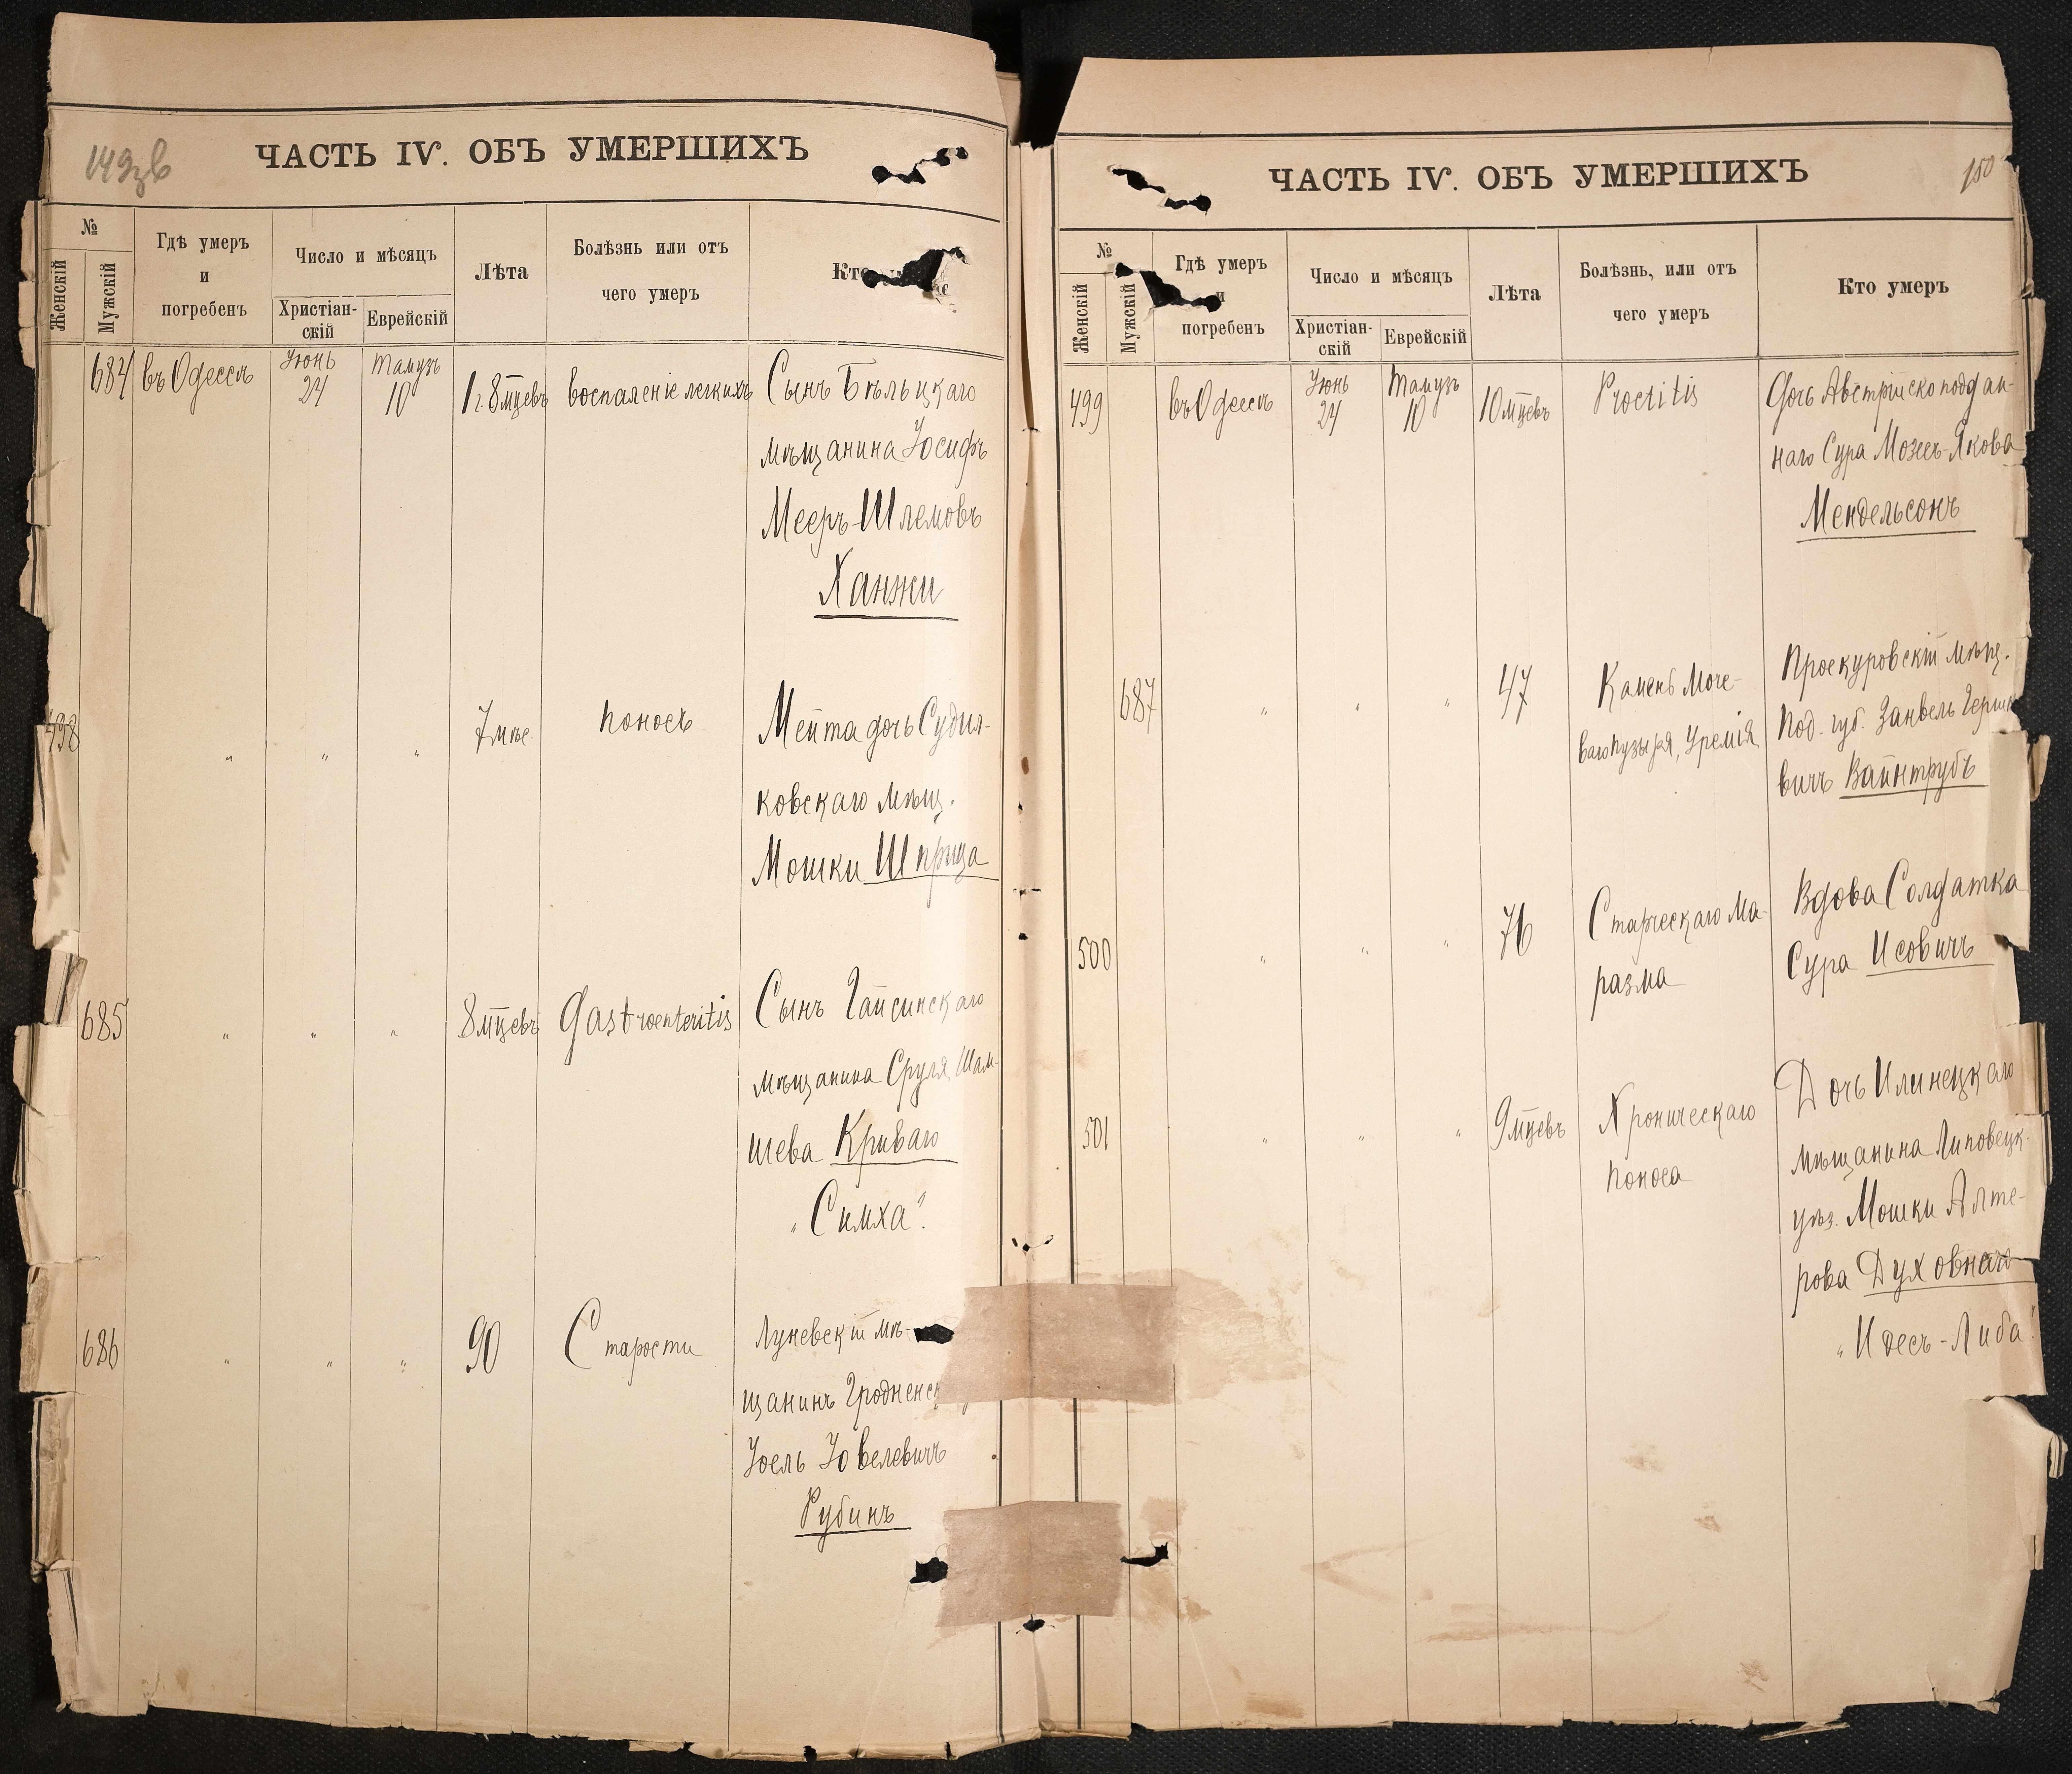 149зв
ЧАСТЬ IV. ОБЪ УМЕРШИХЪ
№
Женскій
Мужскій
Гдѣ умеръ
и
погребенъ
Число и мѣсяцъ
Христіан-
скій
Еврейскій
Лѣта
Болѣзнь или отъ
чего умеръ
Кто
684 въ Одессѣ Іюнь 24 Тамузъ 10 1 г. 8 мцевъ воспаленіе легкихъ Сынъ Бѣльцкаго
мѣщанина Іосифъ
Мееръ-Шлемовъ
Ханжи
498 " " " 7 мѣс. поносъ Мейта дочь Судил-
ковскаго мѣщ.
Мошки Шприца
685 " " " 8 мцевъ Gastroenteritis Сынъ Гайсинскаго
мѣщанина Сруля Шам-
шева Криваго
"Симха".
686 " " " 90 Старости Луневскій мѣ-
щанинъ Гродненск
Іоель Іовелевичъ
Рубинъ
150
ЧАСТЬ IV. ОБЪ УМЕРШИХЪ
№
Женскій
Мужскій
Гдѣ умеръ
и
погребенъ
Число и мѣсяцъ
Христіан-
скій
Еврейскій
Лѣта
Болѣзнь, или отъ
чего умеръ
Кто умеръ
499 въ Одессѣ Іюнь 24 Тамузъ 10 10 мцевъ Proctitis Дочь Австрійско поддан-
наго Сура Мозес-Якова
Мендельсонъ
687 " " " 47 Камень моче-
ваго пузыря, Уремія Проскуровскій мѣщ.
Под. губ. Занвель Герш
вичъ Вайнтрубъ
500 " " " 76 Старческаго Ма-
разма Вдова Солдатка
Сура Исовичъ
501 " " " 9 мцевъ Хроническаго
поноса Дочь Илинецкаго
мѣщанина Липовецк.
уѣз. Мошки Алте-
рова Духовнаго
"Идесъ-Либа"